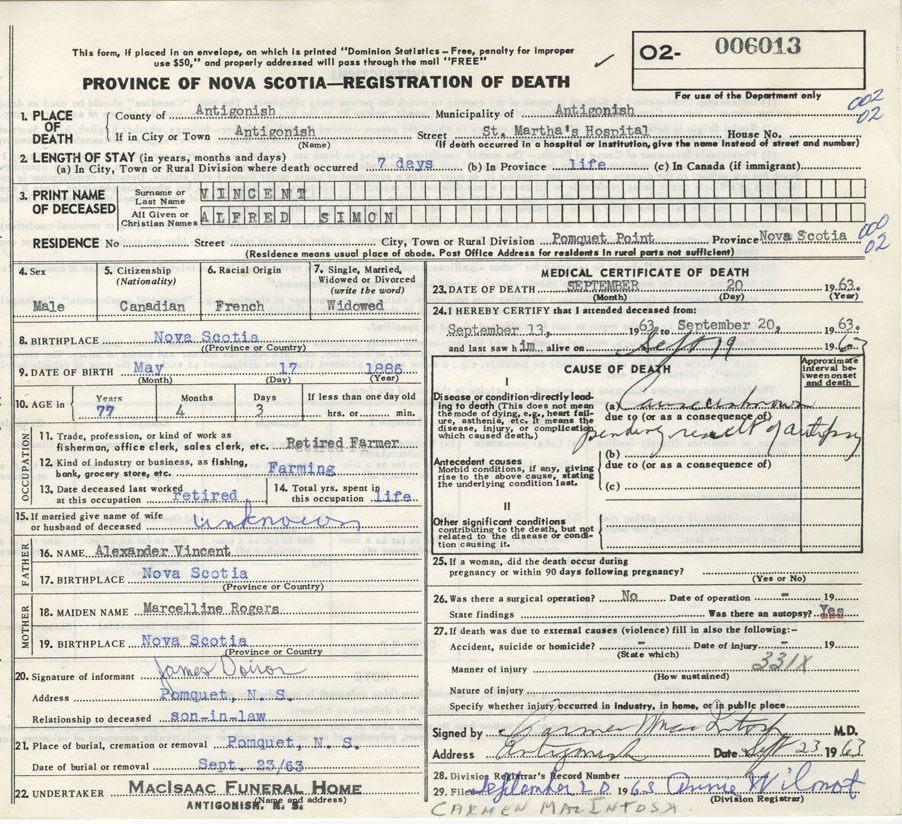 This form, if placed in an envelope, on which is printed "Dominion Statistics – Free, penalty for improper
use $50," and properly addressed will pass through the mail "FREE"
O2- 006013
PROVINCE OF NOVA SCOTIA—REGISTRATION OF DEATH
For use of the Department only
002
02
1. PLACE OF DEATH
County of Antigonish Municipality of Antigonish
If in City or Town Antigonish Street St. Martha's Hospital House No.
(Name) (If death occurred in a hospital or institution, give the name instead of street and number)
2. LENGTH OF STAY (in years, months and days)
(a) In City, Town or Rural Division where death occurred 7 days (b) In Province life (c) In Canada (if immigrant)
3. PRINT NAME OF DECEASED
Surname or Last Name VINCENT
All Given or Christian Names ALFRED SIMON
RESIDENCE No Street City, Town or Rural Division Pomquet Point Province Nova Scotia
(Residence means usual place of abode. Post Office Address for residents in rural parts not sufficient)
02
4. Sex
Male
5. Citizenship
(Nationality)
Canadian
6. Racial Origin
French
7. Single, Married,
Widowed or Divorced
(write the word)
Widowed
8. BIRTHPLACE Nova Scotia
(Province or Country)
9. DATE OF BIRTH May 17 1886
(Month) (Day) (Year)
10. AGE in
Years Months Days If less than one day old
77 4 3 hrs. or min.
OCCUPATION
11. Trade, profession, or kind of work as
fisherman, office clerk, sales clerk, etc. Retired Farmer
12. Kind of industry or business, as fishing,
bank, grocery store, etc. Farming
13. Date deceased last worked
at this occupation retired
14. Total yrs. spent in
this occupation life
15. If married give name of wife
or husband of deceased unknown
FATHER
16. NAME Alexander Vincent
17. BIRTHPLACE Nova Scotia
(Province or Country)
MOTHER
18. MAIDEN NAME Marcelline Rogers
19. BIRTHPLACE Nova Scotia
(Province or Country)
20. Signature of informant James
Address Pomquet, N. S.
Relationship to deceased son-in-law
21. Place of burial, cremation or removal Pomquet, N. S.
Date of burial or removal Sept. 23/63
22. UNDERTAKER MacIsaac Funeral Home
(Name and address)
ANTIGONISH. N. S.
MEDICAL CERTIFICATE OF DEATH
23. DATE OF DEATH SEPTEMBER 20 1963.
(Month) (Day) (Year)
24. I HEREBY CERTIFY that I attended deceased from:
September 13, 1963 to September 20, 1963.
and last saw him alive on Sept 19 1963
CAUSE OF DEATH
Approximate
interval be-
tween onset
and death
I
Disease or condition directly lead-
ing to death (This does not mean
the mode of dying, e.g., heart failure,
asthenia, etc. It means the
disease, injury, or complication
which caused death.)
(a) Cause unknown
due to (or as a consequence of)
pending result of autopsy
Antecedent causes
Morbid conditions, if any, giving
rise to the above cause, stating
the underlying condition last.
(b)
due to (or as a consequence of)
(c)
II
Other significant conditions
contributing to the death, but not
related to the disease or condi-
tion causing it.
25. If a woman, did the death occur during
pregnancy or within 90 days following pregnancy?
(Yes or No)
26. Was there a surgical operation? No Date of operation – 19
State findings Was there an autopsy? Yes
27. If death was due to external causes (violence) fill in also the following:–
Accident, suicide or homicide? – Date of injury – 19
(State which)
Manner of injury 331X
(How sustained)
Nature of injury
Specify whether injury occurred in industry, in home, or in public place
Signed by Carmen MacIntosh M.D.
Address Antigonish Date Sept 23 1963
28. Division Registrar's Record Number
29. Filed September 20 1963 Annie Wilmot
(Division Registrar)
CARMEN MACINTOSH.